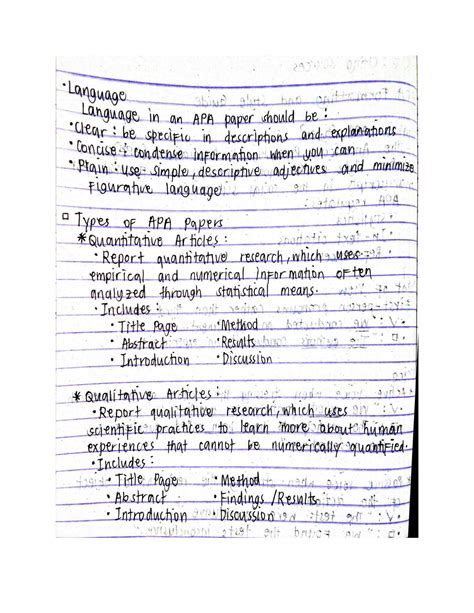 • Language
Language in an APA paper should be :
• Clear : be specific in descriptions and explanations
• Concise : condense information when you can
• Plain : use simple, descriptive adjectives and minimize
figurative language
□ Types of APA Papers
* Quantitative Articles :
• Report quantitative research, which uses
empirical and numerical information often
analyzed through statistical means.
• Includes :
• Title Page • Method
• Abstract • Results
• Introduction • Discussion
* Qualitative Articles :
• Report qualitative research, which uses
scientific practices to learn more about human
experiences that cannot be numerically quantified.
• Includes :
• Title Page • Method
• Abstract • Findings / Results
• Introduction • Discussion